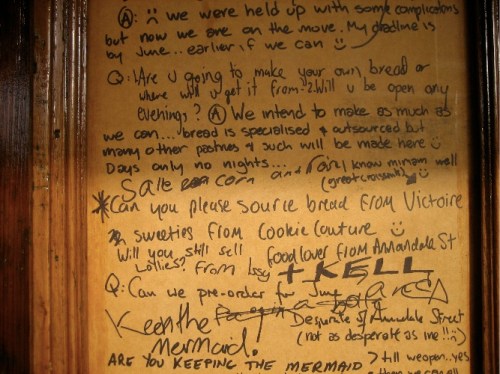 A: :( we were held up with some complications
but now we are on the move. My deadline is
by June.. earlier if we can :)
Q: Are u going to make your own bread or
where will u get it from? 2. Will u be open any
evenings? A We intend to make as much as
we can... bread is specialised & outsourced but
many other pastries & such will be made here :)
Days only no nights...
I know miriam well
Salt corn and
(great croissants)
*Can you please source bread from Victoire
& sweeties from Cookie Couture :)
Will you still sell
food lover from Annandale St
Lollies? From Issy
+ KELL
Q: Can we pre-order for June
Keep the
Desperate of Annandale Street
Mermaid!
(not as desperate as me!!:)
ARE YOU KEEPING THE MERMAID
? till we open..yes